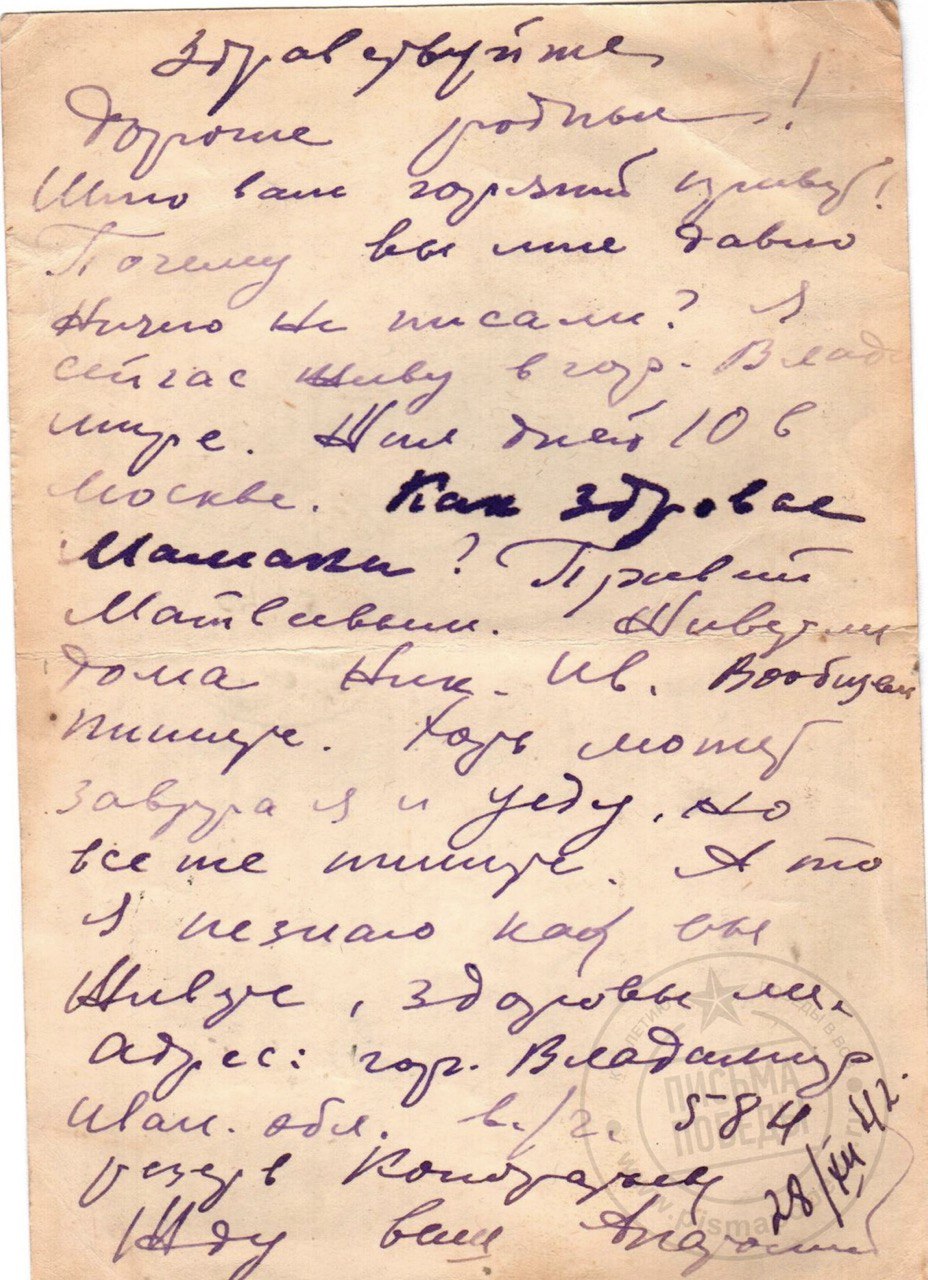 Здравствуйте
Дорогие родные!
Шлю вам горячий привет!
Почему вы мне давно
ничего не писали? Я
сейчас живу в гор. Влади
мире. Жил дней 10 в
Москве. Как здоровье
Мамаши? Привет
Матвеевым. Живут ли
дома Ник. Ив. Вообщем
пишите. Хоть может
завтра я и уеду, но
все же пишите. А то
я незнаю как вы
живете, здоровы ли.
Адрес: гор. Владимир
Иван. обл. в/ч. 584
резерв
Жду ваш
28/XII 42.
ПИСЬМА
ПОБЕДЫ